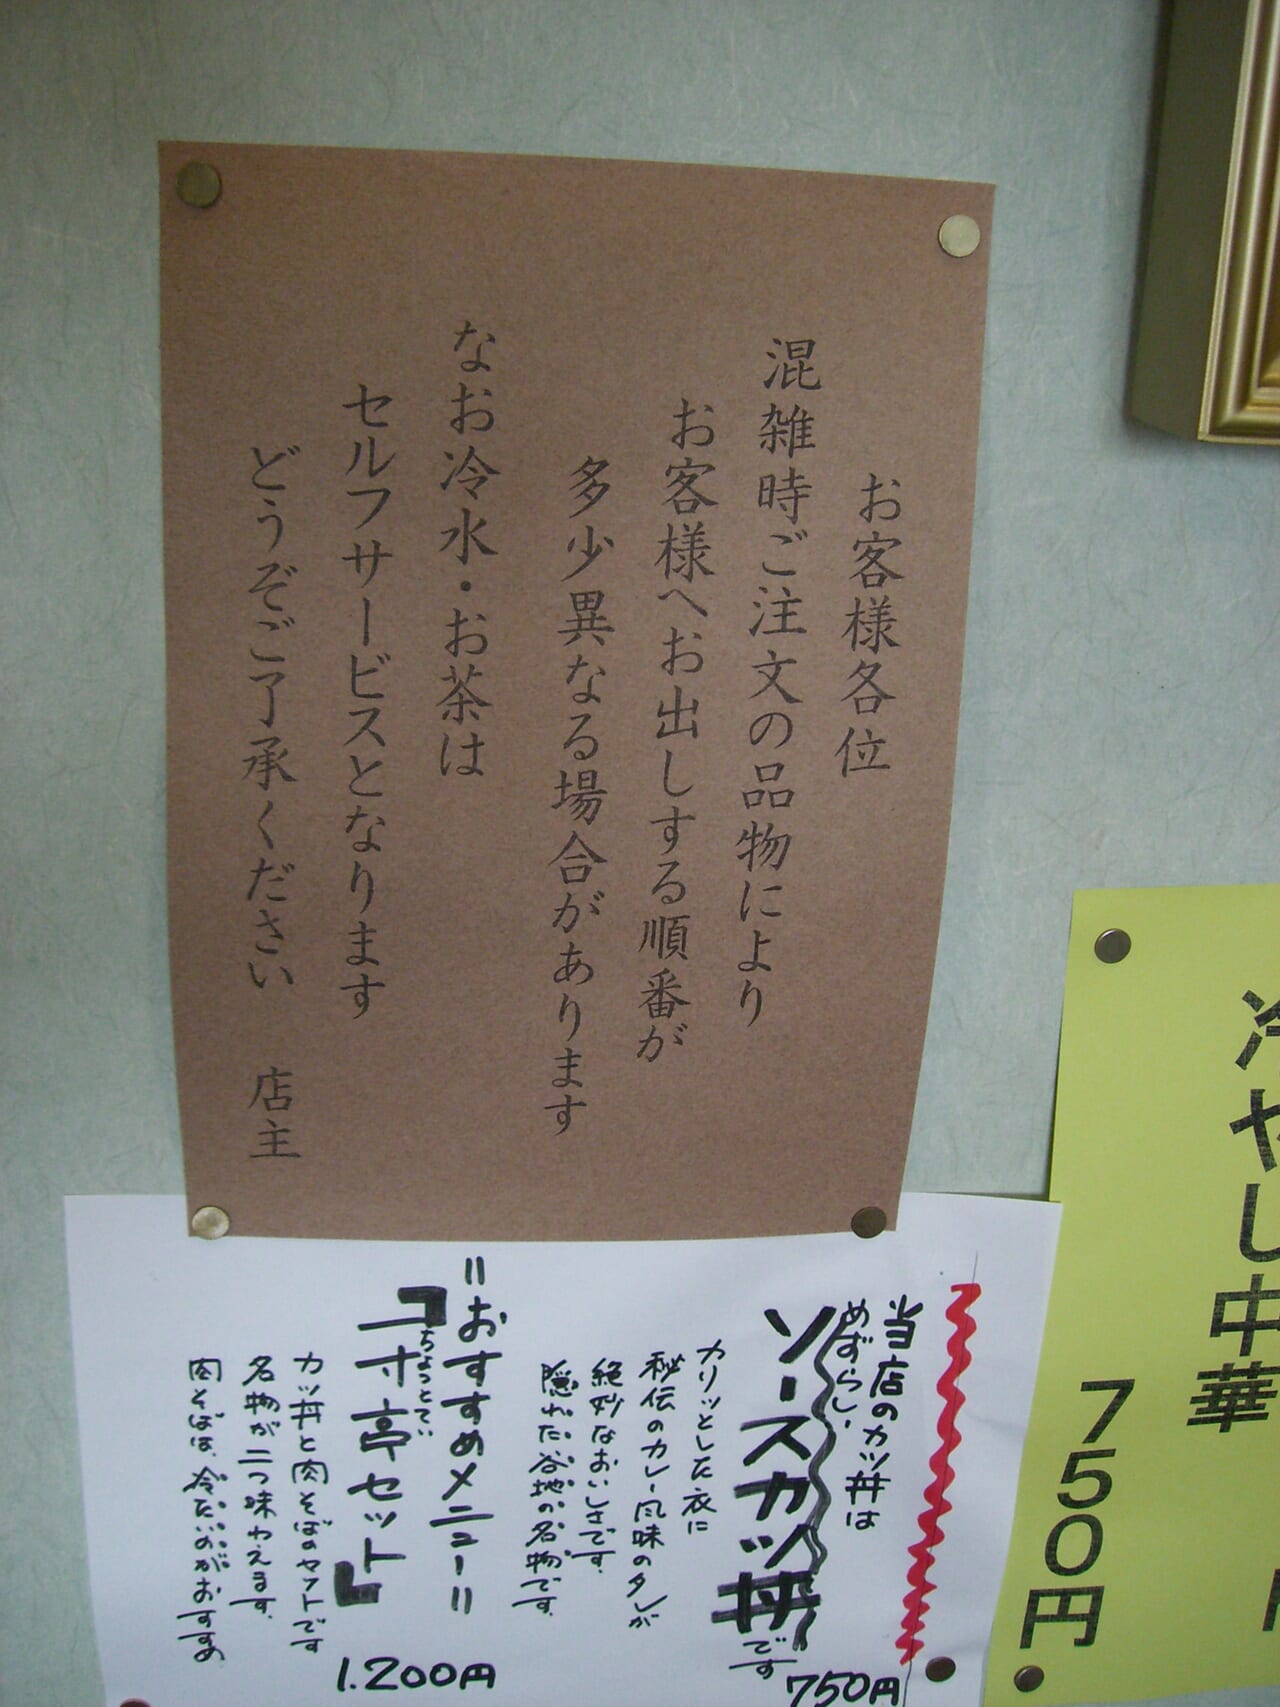 お客様各位
混雑時ご注文の品物により
お客様へお出しする順番が
多少異なる場合があります
なお冷水・お茶は
セルフサービスとなります
どうぞご了承ください　店主
当店のカツ丼は
めずらしい
ソースカツ丼です
750円
カリッとした衣に
秘伝のカレー風味のタレが
絶妙なおいしさです。
隠れた谷地の名物です。
=おすすめメニュー=
ちょっとてい
亭セット』
1.200円
カツ丼と肉そばのセットです
名物が二つ味わえます。
肉そばは、冷たいのがおすすめ
冷やし中華
750円